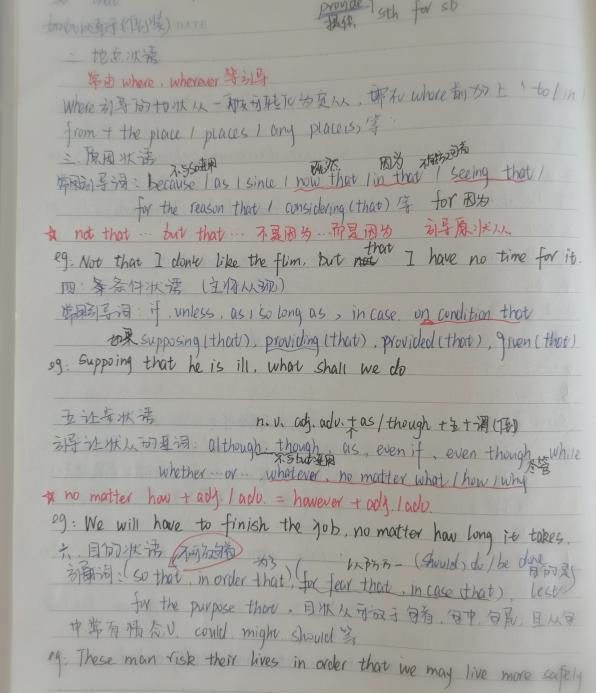 provide sth for sb
提供
DATE
二 地点状语
常由 where, wherever 等引导
where引导的地状从一般可转化为定从, 即在 where 前加上 "to / in /
from + the place / places / any places, 等
三. 原因状语
不与so连用 既然 因为
常用引导词: because / as / since / now that / in that / seeing that /
for the reason that / considering (that) 等 for 因为
☆ not that … but that … 不是因为…而是因为 引导原状从
eg: Not that I don't like the flim, but that I have no time for it.
四: 条件状语 (主将从现)
常用引导词: if, unless, as / so long as, in case, on condition that
如果 supposing (that), providing (that), provided (that), given (that)
eg: Supposing that he is ill, what shall we do
五 让步状语 n. v. adj. adv. + as / though + 主 + 谓 (倒)
引导让状从的星词: although, though, as, even if, even though, while
不与but连用 尽管
whether … or … whatever, no matter what / how / why
☆ no matter how + adj. / adv. = however + adj. / adv.
eg: We will have to finish the job, no matter how long it takes.
六. 目的状语 不可放句首
为了 以防万一 (should) do / be done 目的是
引导词: (so that, in order that) (for fear that, in case that), lest
for the purpose that, 目状从可放于句首, 句中, 句尾, 且从句
中常有情态v. could, might, should 等
eg: These man risk their lives in order that we may live more safely